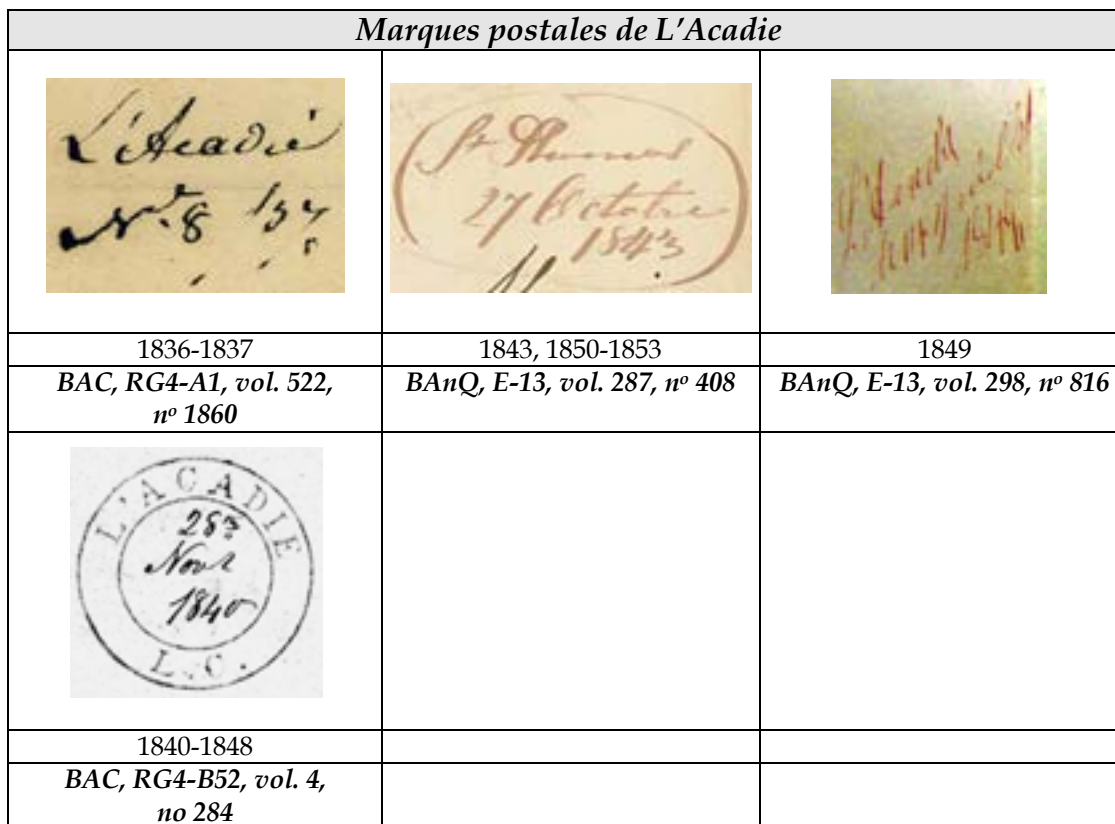 Marques postales de L'Acadie
L'Acadie
Nr. 8
St Thomas
27 Octobre
1843
L'Acadie
1836-1837
1843, 1850-1853
1849
BAC, RG4-A1, vol. 522,
nº 1860
BAnQ, E-13, vol. 287, nº 408
BAnQ, E-13, vol. 298, nº 816
L'ACADIE
Novr
1840
L.C.
1840-1848
BAC, RG4-B52, vol. 4,
no 284